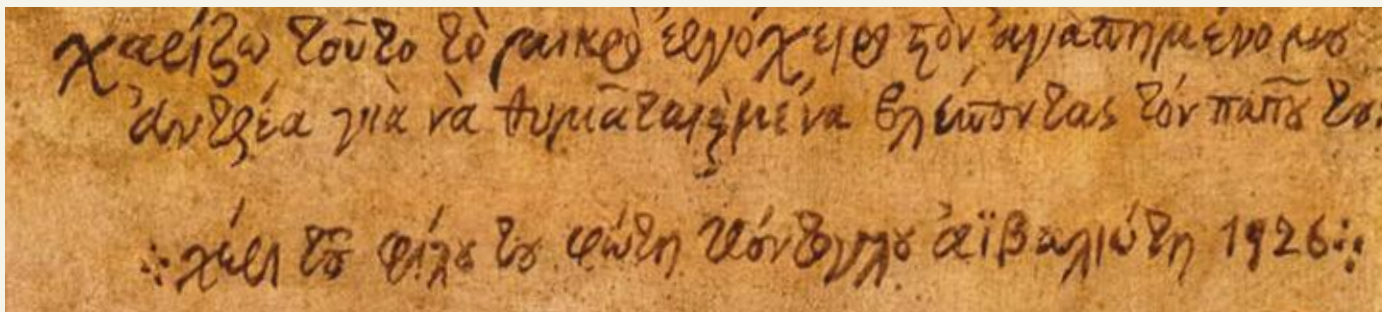 χαρίζω τοῦτο τὸ μικρὸ ἐργόχειρο στὸν ἀγαπημένο μου
Ἀντρέα γιὰ νὰ θυμᾶται κ' ἐμένα βλέποντας τόν παπποῦ του.
χέρι τοῦ φίλου του Φώτη Κόντογλου ἀϊβαλιώτη 1926